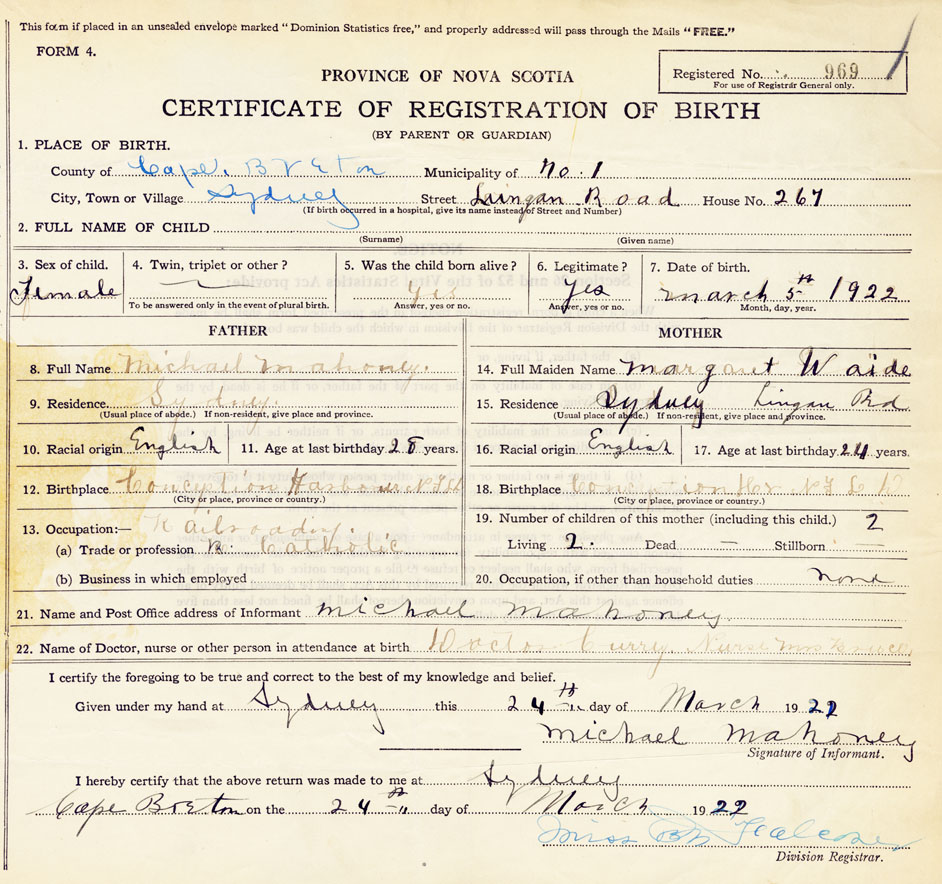 This form if placed in an unsealed envelope marked "Dominion Statistics free," and properly addressed will pass through the Mails "FREE."
FORM 4.
Registered No. 969
For use of Registrar General only.
PROVINCE OF NOVA SCOTIA
CERTIFICATE OF REGISTRATION OF BIRTH
(BY PARENT OR GUARDIAN)
1. PLACE OF BIRTH.
County of Cape Breton Municipality of No. 1
City, Town or Village Sydney Street Lingan Road House No. 267
(If birth occurred in a hospital, give its name instead of Street and Number)
2. FULL NAME OF CHILD
(Surname) (Given name)
3. Sex of child. 4. Twin, triplet or other? 5. Was the child born alive? 6. Legitimate? 7. Date of birth.
Female Yes Yes March 5th 1922
To be answered only in the event of plural birth. Answer, yes or no. Answer, yes or no. Month, day, year.
FATHER MOTHER
8. Full Name Michael Mahoney. 14. Full Maiden Name Margaret Waide
9. Residence Sydney. 15. Residence Sydney Lingan Rd
(Usual place of abode.) If non-resident, give place and province. (Usual place of abode.) If non-resident, give place and province.
10. Racial origin English 11. Age at last birthday 28 years. 16. Racial origin English 17. Age at last birthday 24 years.
12. Birthplace Conception Harbour 18. Birthplace Conception Hr
(City or place, province or country.) (City or place, province or country.)
13. Occupation:— Railroading. 19. Number of children of this mother (including this child.) 2
(a) Trade or profession R. Catholic Living 2. Dead — Stillborn —
(b) Business in which employed 20. Occupation, if other than household duties none
21. Name and Post Office address of Informant Michael Mahoney
22. Name of Doctor, nurse or other person in attendance at birth Doctor Curry. Nurse Mrs
I certify the foregoing to be true and correct to the best of my knowledge and belief.
Given under my hand at Sydney this 24th day of March 1922
Michael Mahoney
Signature of Informant.
I hereby certify that the above return was made to me at Sydney
Cape Breton on the 24th day of March 1922
Miss
Division Registrar.